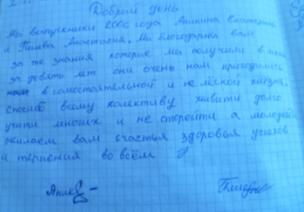 Добрий день
Мы выпускники 2006 года Аникина Екатерина
и Анастасия, Мы благодарны вам
за те знания которые мы получили в
за девять лет они очень нам пригодились
нам в самостоятельной и не лёгкой жизни,
спасибо всему колективу живите долго
учите многих и не старейте а молодейте
желаем вам счастья здоровья успехов
и терпения во всём